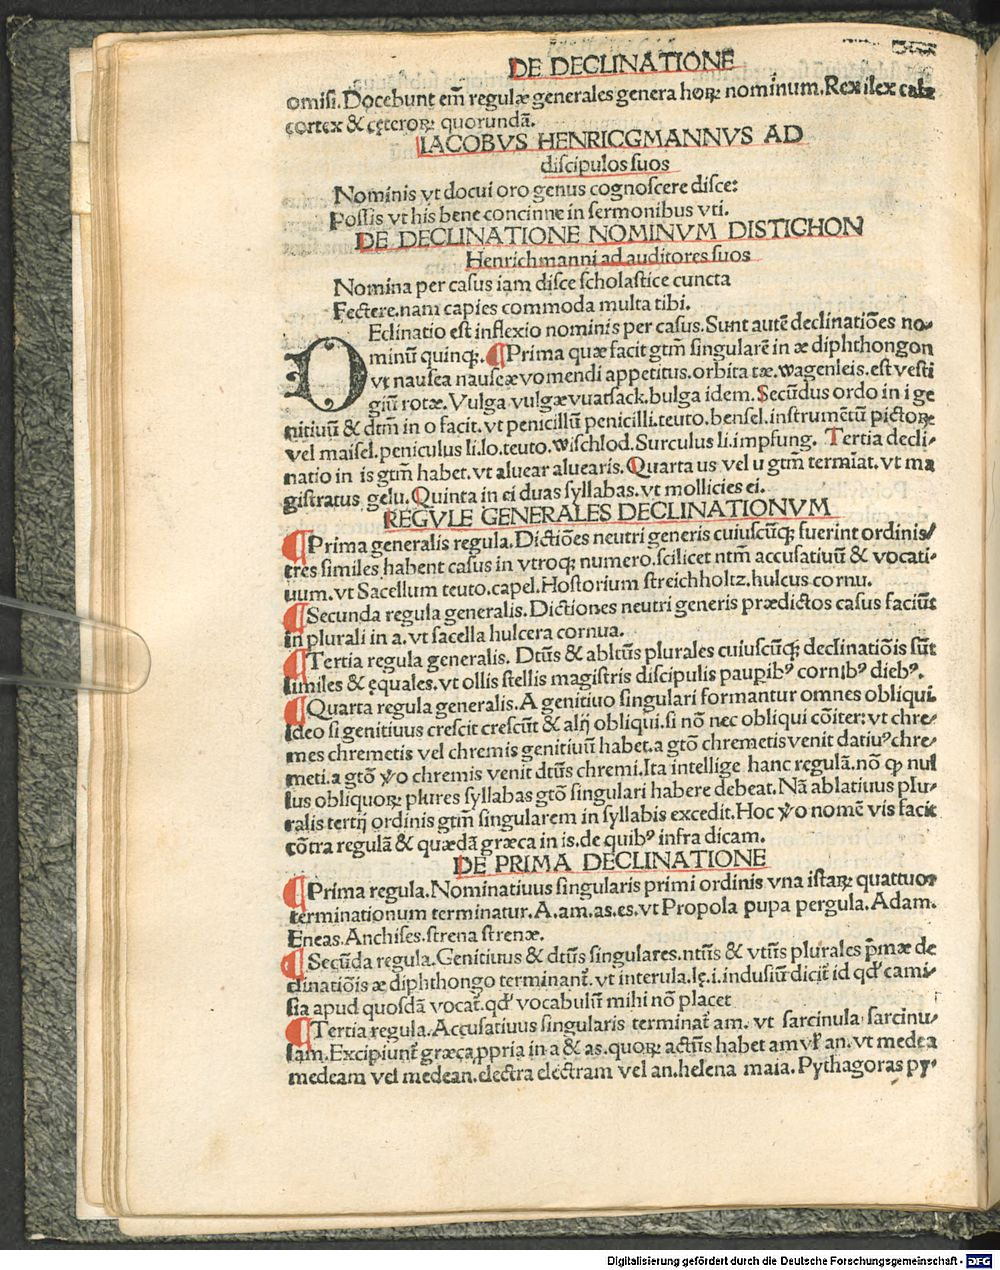 DE DECLINATIONE
omisi. Docebunt em̄ regulæ generales genera hoꝝ nominum. Rex ilex calx
cortex & cęteroꝝ quorundã.
IACOBVS HENRICGMANNVS AD
discipulos suos
Nominis vt docui oro genus cognoscere disce:
Possis vt his bene concinne in sermonibus vti.
DE DECLINATIONE NOMINVM DISTICHON
Henrichmanni ad auditores suos
Nomina per casus iam disce scholastice cuncta
Flectere. nam capies commoda multa tibi.
DEclinatio est inflexio nominis per casus. Sunt autẽ declinatiões no-
minũ quinqꝫ. ¶ Prima quæ facit gtm̃ singularẽ in æ diphthongon
vt nausea nauseæ vomendi appetitus. orbita tæ. wagenleis. est vesti
giũ rotæ. Vulga vulgæ vuatsack. bulga idem. Secũdus ordo in i ge
nitiuũ & dtm̃ in o facit. vt penicillũ penicilli. teuto. bensel. instrumẽtũ pictoꝝ
vel maisel. peniculus li. lo. teuto. wischlod. Surculus li. impfung. Tertia decli-
natio in is gtm̃ habet. vt aluear aluearis. Quarta us vel u gtm̃ termiãt. vt ma
gistratus gelu. Quinta in ei duas syllabas. vt mollicies ei.
REGVLE GENERALES DECLINATIONVM
¶ Prima generalis regula. Dictiões neutri generis cuiuscũqꝫ fuerint ordinis/
tres similes habent casus in vtroqꝫ numero. scilicet ntm̃ accusatiuũ & vocati-
uum. vt Sacellum teuto. capel. Hostorium streichholtz. hulcus cornu.
¶ Secunda regula generalis. Dictiones neutri generis prædictos casus faciũt
in plurali in a. vt sacella hulcera cornua.
¶ Tertia regula generalis. Dtũs & abltũs plurales cuiuscũqꝫ declinatiõis sũt
similes & ęquales. vt ollis stellis magistris discipulis paupibꝰ cornibꝰ diebꝰ.
¶ Quarta regula generalis. A genitiuo singulari formantur omnes obliqui.
Ideo si genitiuus crescit crescũt & alij obliqui. si nõ nec obliqui cõiter: vt chre-
mes chremetis vel chremis genitiuũ habet. a gtõ chremetis venit datiuꝰ chre-
meti. a gtõ ṽo chremis venit dtũs chremi. Ita intellige hanc regulã. nõ ꝙ nul
lus obliquoꝝ plures syllabas gtõ singulari habere debeat. Nã ablatiuus plu-
ralis tertij ordinis gtm̃ singularem in syllabis excedit. Hoc ṽo nomẽ vis facit
cõtra regulã & quædã græca in is. de quibꝰ infra dicam.
DE PRIMA DECLINATIONE
¶ Prima regula. Nominatiuus singularis primi ordinis vna istaꝝ quattuor
terminationum terminatur. A. am. as. es. vt Propola pupa pergula. Adam.
Eneas. Anchises. strena strenæ.
¶ Secũda regula. Genitiuus & dtũs singulares. ntũs & vtũs plurales p̃mæ de
clinatiõis æ diphthongo terminant᷑. vt interula. lę. i. indusiũ dicit᷑ id qd̕ cami-
sia apud quosdã vocat᷑. qd̕ vocabulũ mihi nõ placet
¶ Tertia regula. Accusatiuus singularis terminat᷑ am. vt sarcinula sarcinu-
lam. Excipiunt᷑ græca ꝓpria in a & as. quoꝝ actũs habet am vl̕ an. vt medea
medeam vel medean. electra electram vel an. helena maia. Pythagoras py-
Digitalisierung gefördert durch die Deutsche Forschungsgemeinschaft - DFG